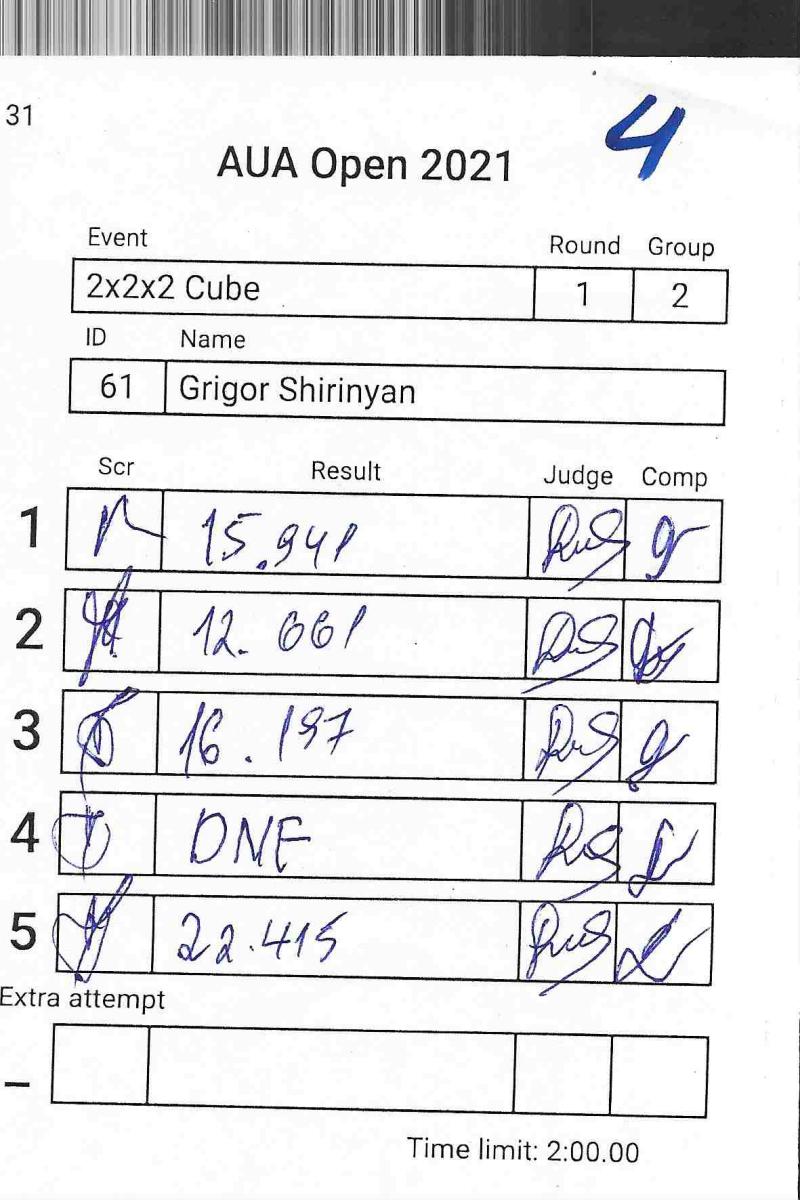 31
4
AUA Open 2021
Event Round Group
2x2x2 Cube 1 2
ID Name
61 Grigor Shirinyan
Scr Result Judge Comp
1 15.941
2 12.661
3 16.197
4 DNF
5 22.415
Extra attempt
_
Time limit: 2:00.00